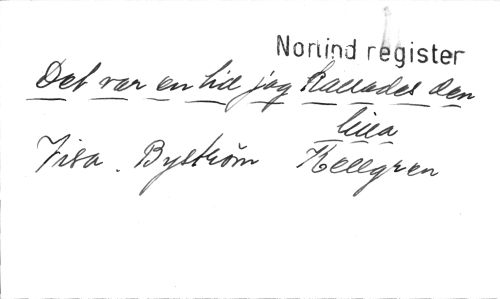 Nortind register
Det var en tid jag kallades den
lilla
Visa. Byström Kellgren